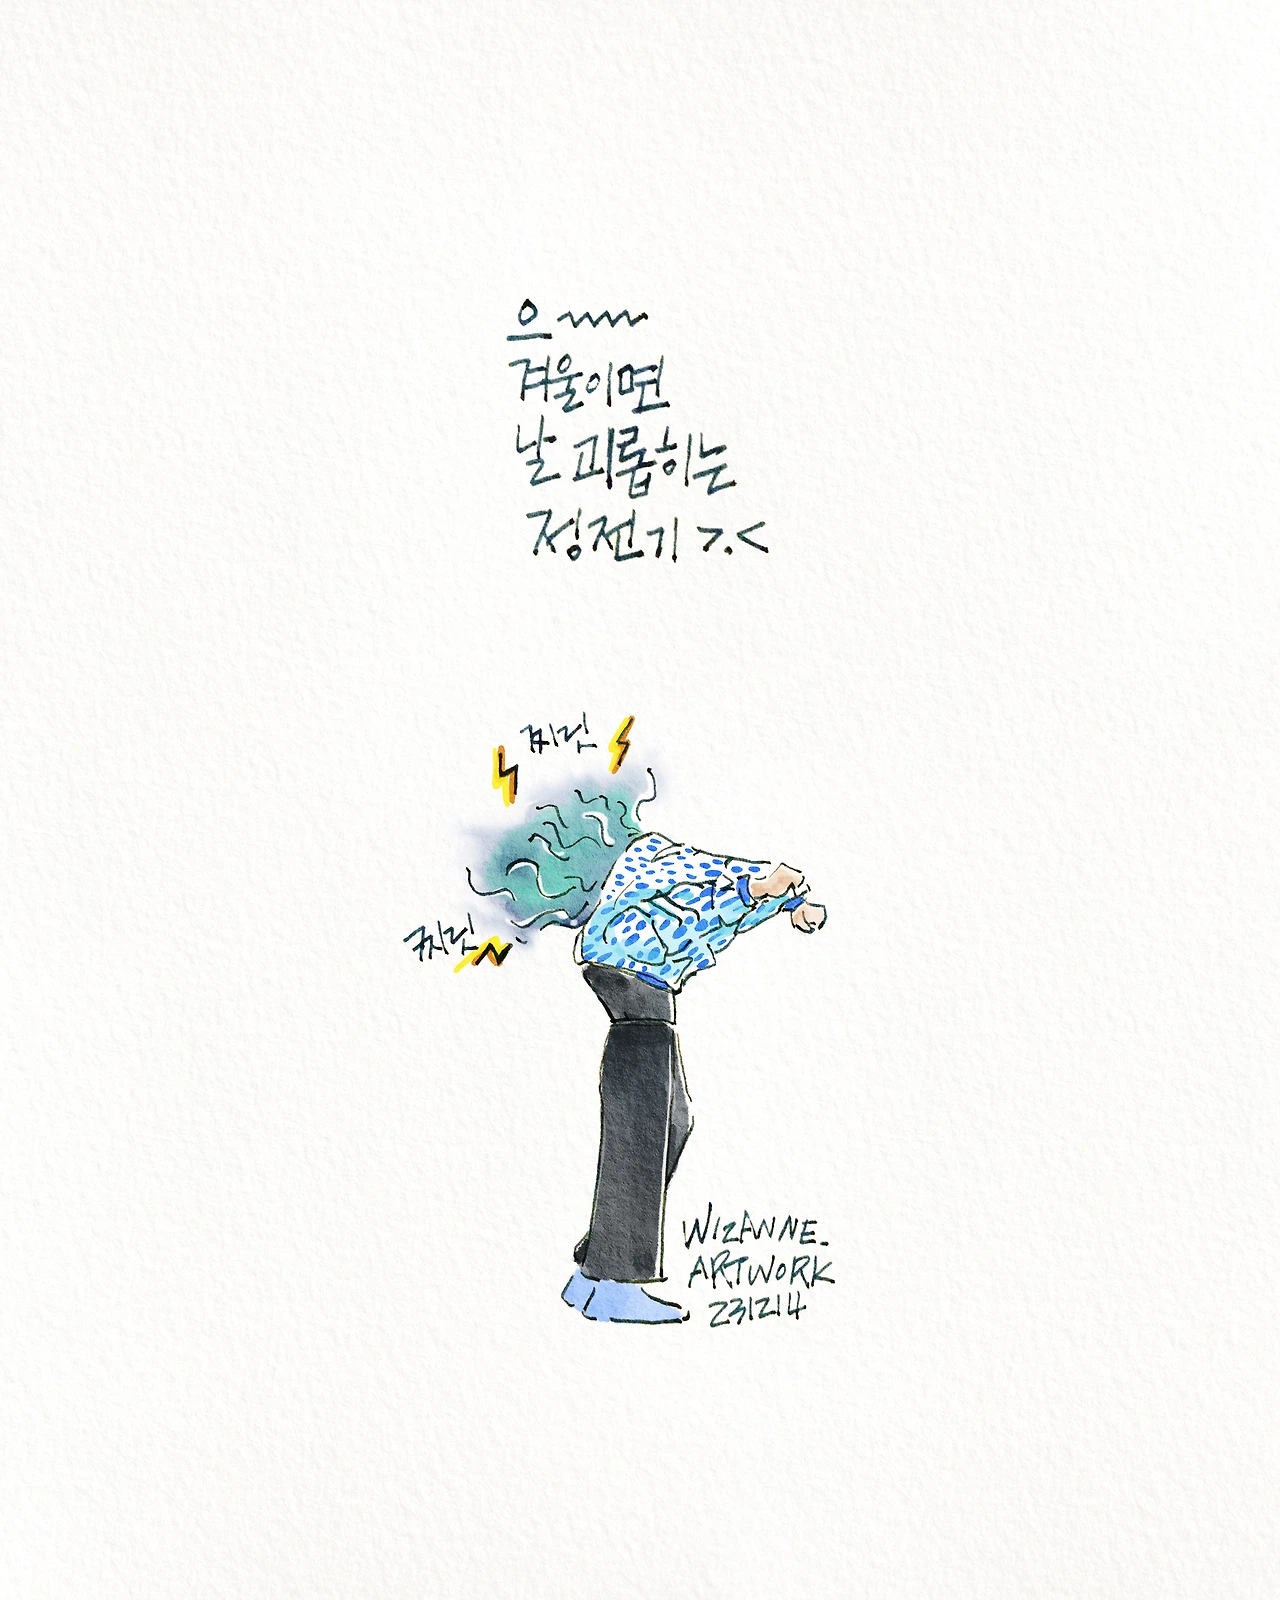 으~~~
겨울이면
날 괴롭히는
정전기 >.<
찌릿
찌릿
WIZANNE_
ARTWORK
231214